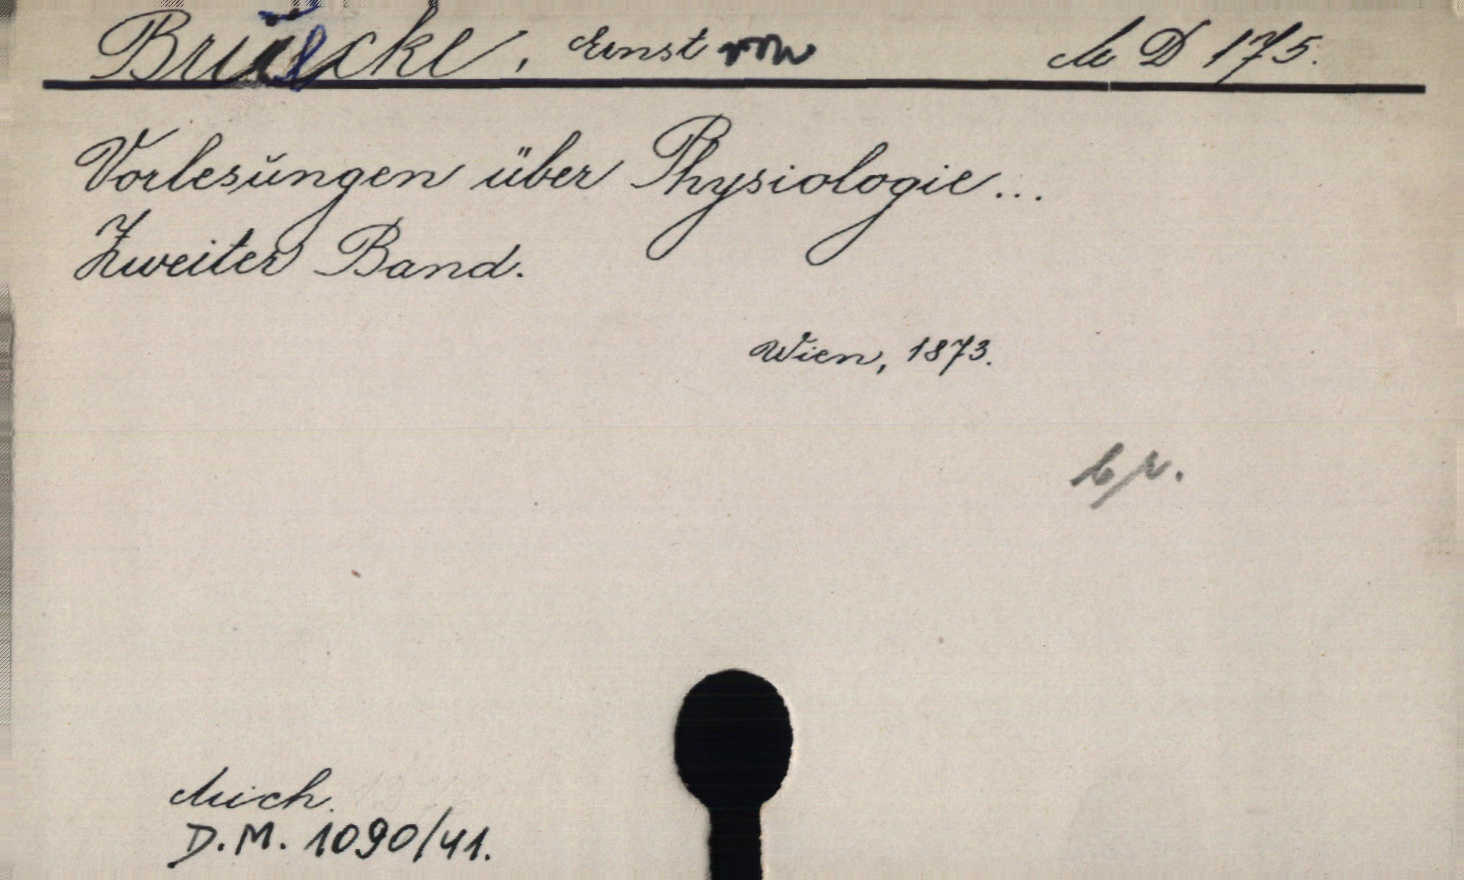 Brücke, Ernst von M D 175.
Vorlesŭngen über Physiologie...
Zweiter Band.
Wien, 1873.
Mich.
D.M. 1090/41.